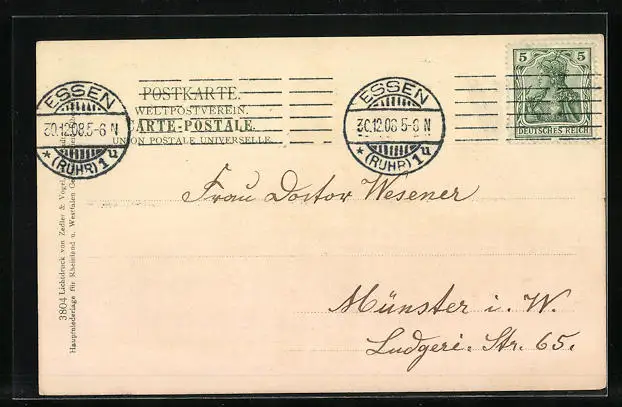 POSTKARTE.
WELTPOSTVEREIN.
CARTE-POSTALE.
UNION POSTALE UNIVERSELLE.
ESSEN
30.12.08.5-6 N
* (RUHR) 1u
ESSEN
30.12.08 5-6 N
* (RUHR) 1u
5 5
DEUTSCHES REICH
Frau Doctor Wesener
Münster i. W.
Ludgeri-Str. 65.
3804 Lichtdruck von Zedler & Vogel,
Hauptniederlage für Rheinland u. Westfalen